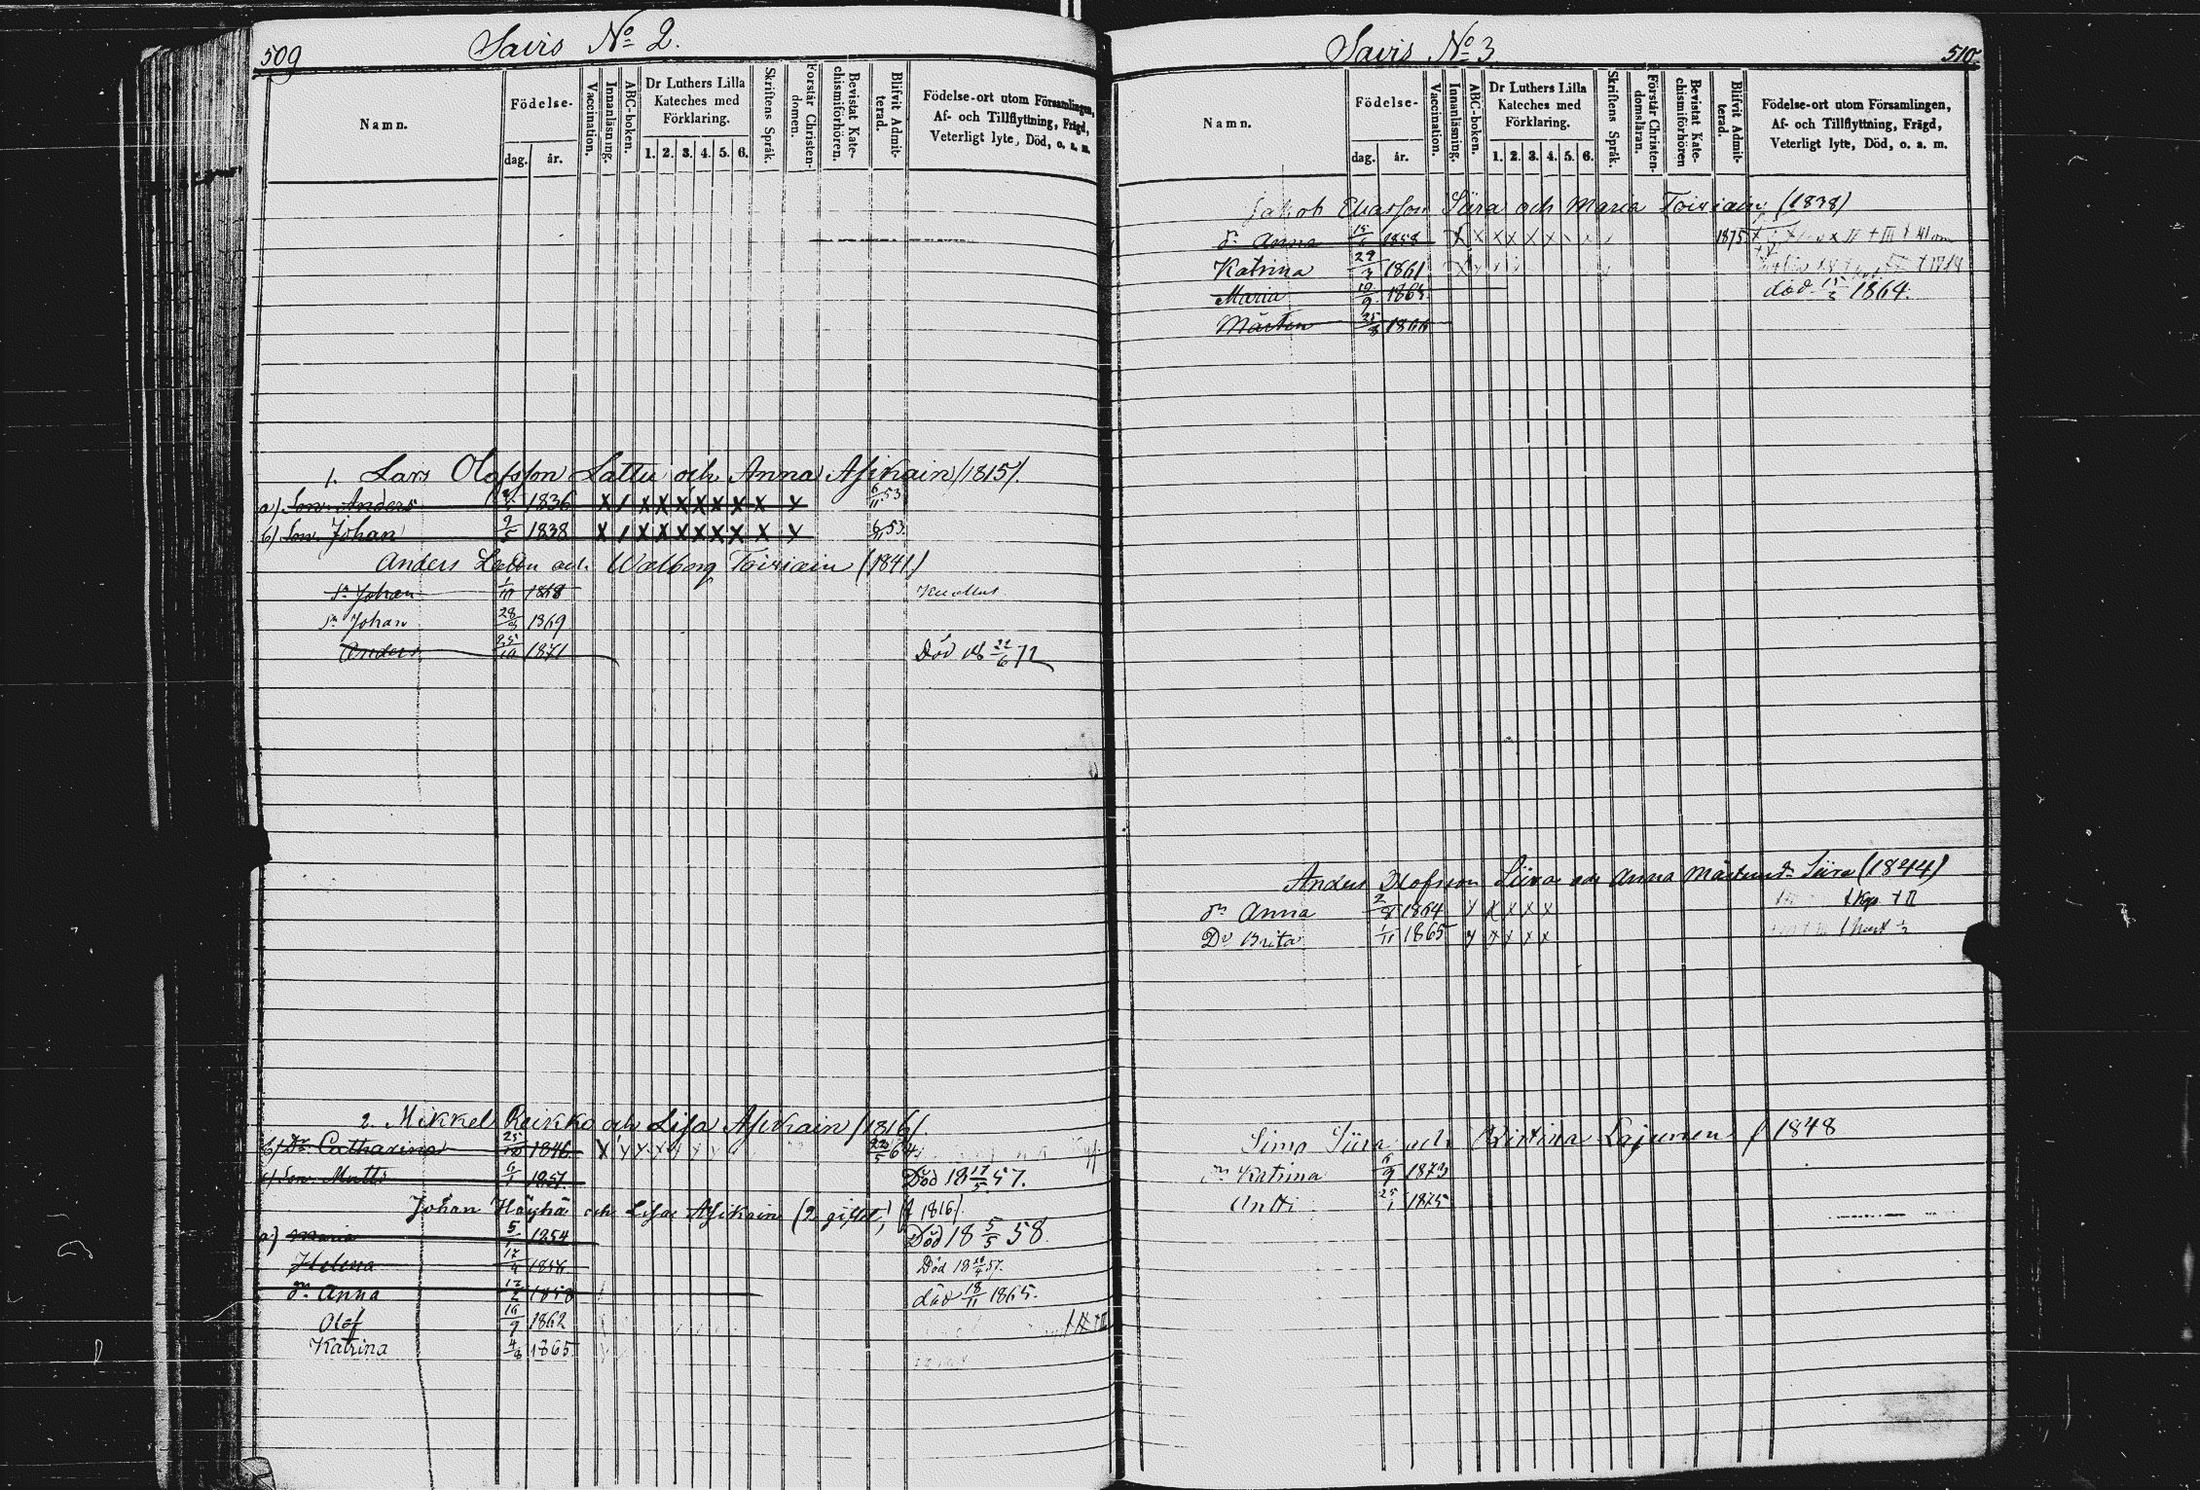 509
Savis No 2.
Namn.
Födelse-
dag. år.
Vaccination.
Innanläsning.
ABC-boken.
Dr Luthers Lilla
Kateches med
Förklaring.
1. 2. 3. 4. 5. 6.
Skriftens Språk.
Förstår Christen-
domen.
Bevistat Kate-
chismiförhören.
Blifvit Admit-
terad.
Födelse-ort utom Församlingen,
Af- och Tillflyttning, Frägd,
Veterligt lyte, Död, o. s. m.
1. Lars Olofsson Lattu och Anna Asikain (1815).
a) Son Anders 1836 X / X X X X X X X X 6/11 53
b) Son Johan 2/5 1838 X / X X X X X X X X 6/11 53.
Anders Lattu och Walborg Toiviain (1841)
Sn Johan 1/11 1868
Sn Johan 28/9 1869
Anders 25/10 1871 Död 18 22/6 72
2. Mikkel Reikko och Lisa Asikain (1816).
b) Dr. Catharina 25/10 1846 X 22/5 64.
c) Son Matts 6/1 1851. Död 18 17/5 57.
Johan Häyhä och Lisa Asikain (2 gift) (f 1816).
a) Maria 5/ 1854 Död 18 5/5 58.
Helena 17/4 1856 Död 18 57.
Dr Anna 12/2 1858 död 18/11 1865.
Olof 16/9 1862
Katrina 4/8 1865.
Savis No 3
510.
Namn.
Födelse-
dag. år.
Vaccination.
Innanläsning.
ABC-boken.
Dr Luthers Lilla
Kateches med
Förklaring.
1. 2. 3. 4. 5. 6.
Skriftens Språk.
Förstår Christen-
domsläran.
Bevistat Kate-
chismiförhören
Blifvit Admit-
terad.
Födelse-ort utom Församlingen,
Af- och Tillflyttning, Frägd,
Veterligt lyte, Död, o. s. m.
Jakob Eliasson Siira och Maria Toiviain (1838)
Dr Anna 15/ 1858 X X X X X X 1875
Katrina 29/3 1861
Maria 10/9 1863 död 15/3 1864.
Mårten 25/8 1866
Anders Olofsson Siira och Anna Mårtensdr Siira (1844)
Dr Anna 2/8 1864 X X X X X
Do Brita 1/11 1865 X X X X X
Simo Siira och Kristina Lajunen f 1848
Dr Katrina 6/9 1873
Antti 25/1 1875